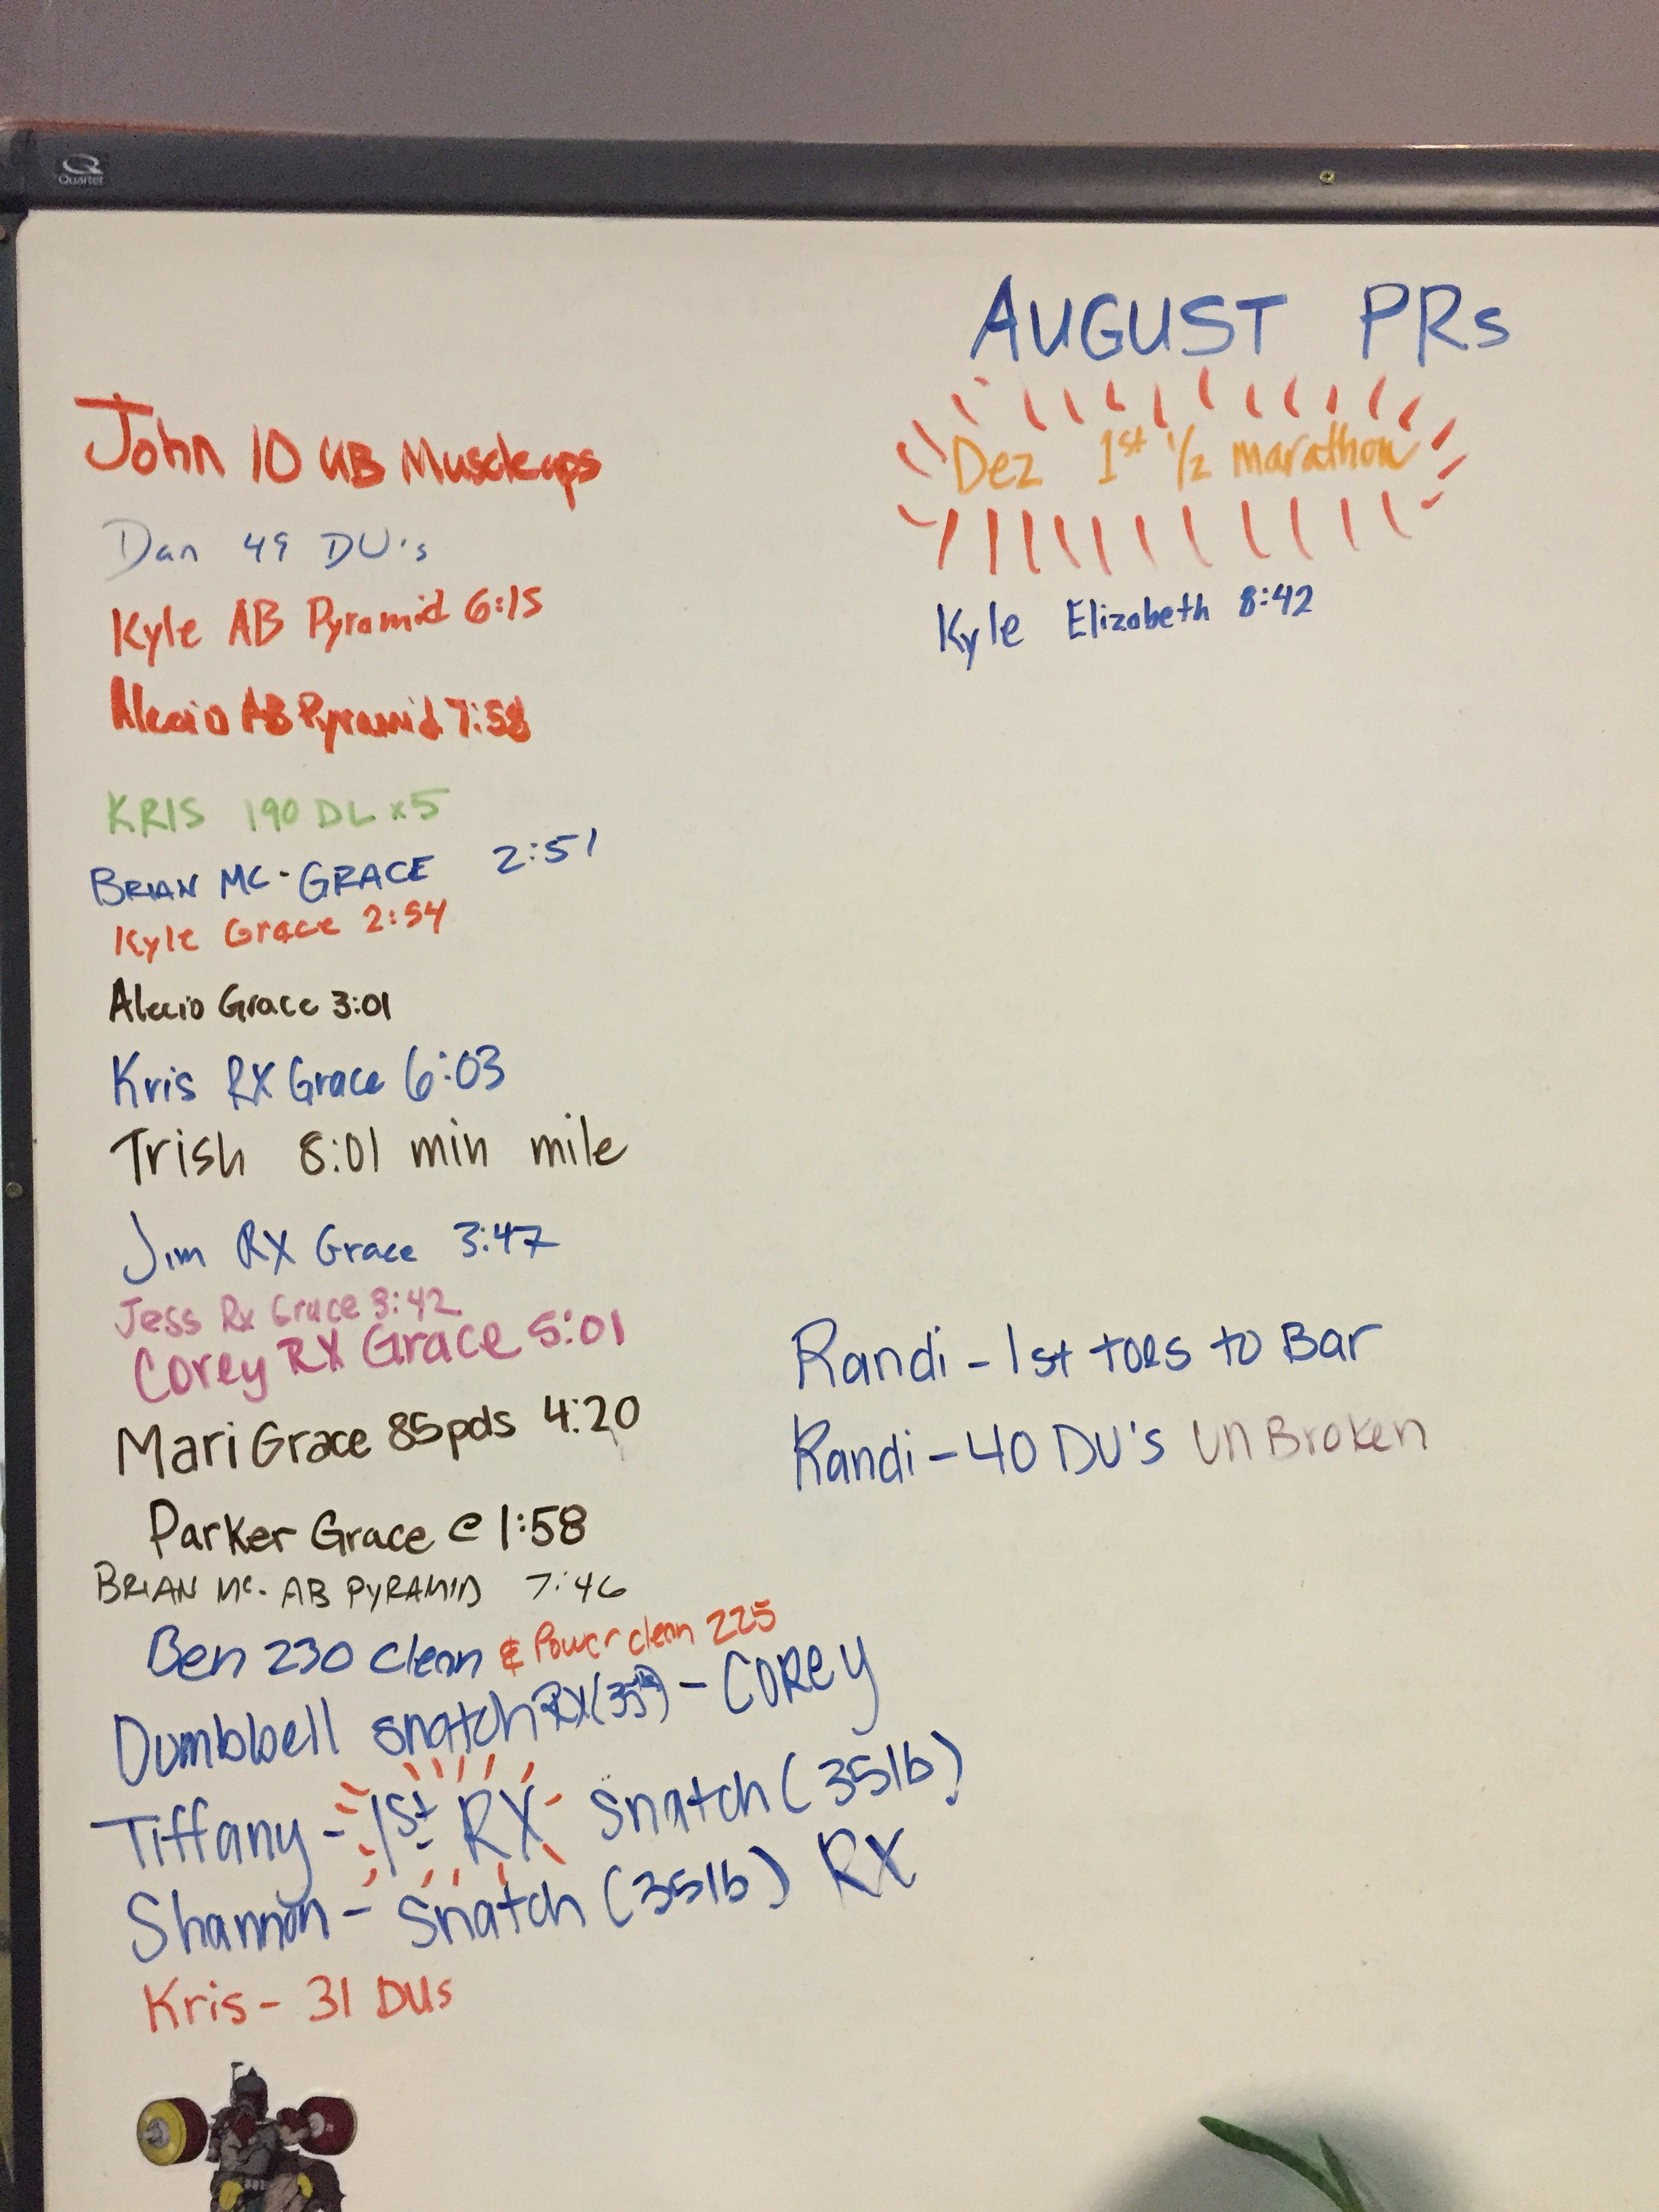 Quartet
AUGUST PRs
John 10 UB Muscleups
Dan 49 DU's
Kyle AB Pyramid 6:15
Alecio AB Pyramid 7:58
KRIS 190 DL x5
BRIAN MC - GRACE 2:51
Kyle Grace 2:54
Alecio Grace 3:01
Kris RX Grace 6:03
Trish 8:01 min mile
Jim RX Grace 3:47
Jess Rx Grace 3:42
Corey RX Grace 5:01
Mari Grace 85pds 4:20
Parker Grace @ 1:58
BRIAN MC. AB PYRAMID 7:46
Ben 230 Clean & Power clean 225
Dumbbell snatch RX (35lb) - COREY
Tiffany - 1st RX Snatch (35lb)
Shannon - Snatch (35lb) RX
Kris - 31 DUs
Dez 1st 1/2 marathon
Kyle Elizabeth 8:42
Randi - 1st toes to Bar
Randi - 40 DU's UnBroken